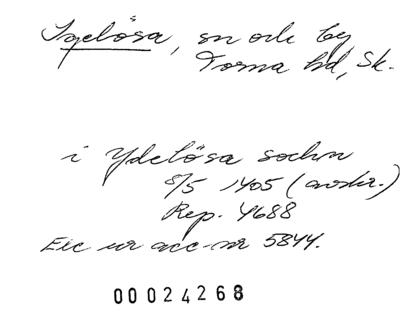 Igelösa, sn och by
Torna hd, Sk.
i Ydelösa sochn
8/5 1405 (avskr.)
Rep. 4688
Exc ur acc-nr 5844.
00024268